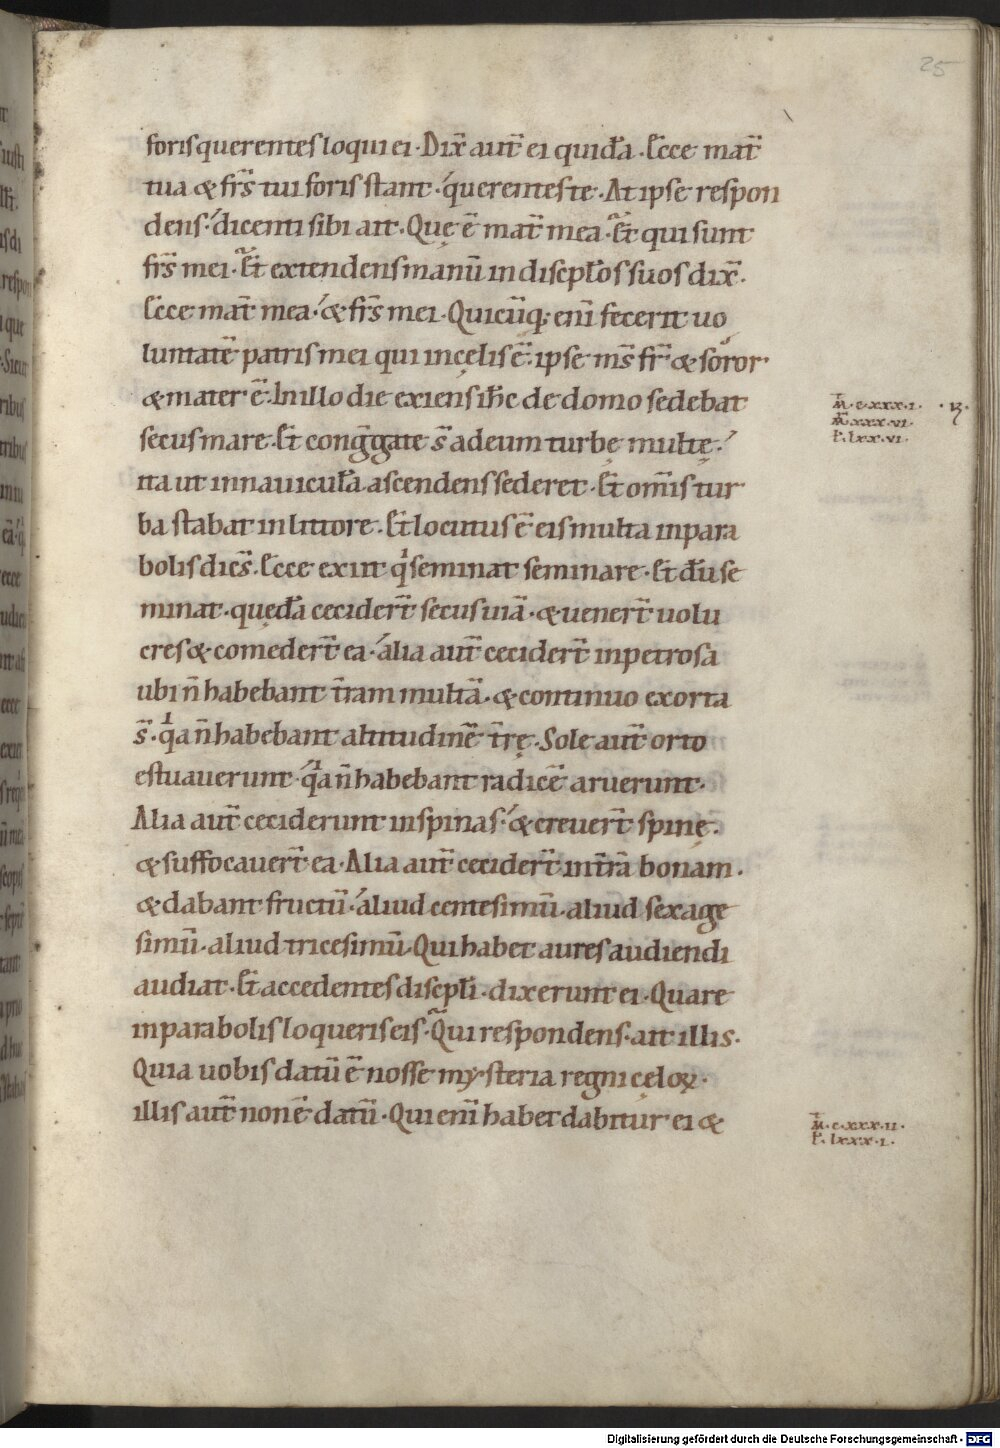 25
foris querentes loqui ei · Dix̄ aut̄ ei quidā · Ecce mat̄
tua & fr̄s tui foris stant · querentes te · At ipse respon
dens · dicenti sibi ait · Quę ē mat̄ mea · Et qui sunt
fr̄s mei · Et extendens manū in discipłos suos dix̄ ·
Ecce mat̄ mea · & fr̄s mei · Quicūq; enī fecerit uo
luntatē patris mei qui in cęlis ē · ipse m̄s fr̄ & soror ·
& mater ē · In illo die exiens ih̄c de domo sedebat
secus mare · Et congḡgate s̄ ad eum turbę multę ·
ita ut in nauiculā ascendens sederet · Et om̄is tur
ba stabat in littore · Et locutus ē eis multa in para
bolis dicēs · Ecce exiit q̍ seminat seminare · Et dū se
minat · quędā cecider̄t secus uiā · & uener̄t uolu
cres & comeder̄t ea · alia aut̄ cecider̄t in petrosa
ubi n̄ habebant t̄ram multā · & continuo exorta
s̄ · q̍a n̄ habebant altitudinē t̄rę · Sole aut̄ orto
estuauerunt · q̍a n̄ habebant radicē aruerunt ·
Alia aut̄ ceciderunt in spinas · & creuer̄t spinę ·
& suffocauer̄t ea · Alia aut̄ cecider̄t in t̄rā bonam ·
& dabant fructū · aliud centesimū · aliud sexage
simū · aliud tricesimū · Qui habet aures audiendi
audiat · Et accedentes discipłi · dixerunt ei · Quare
in parabolis loqueris eis · Qui respondens · ait illis ·
Quia uobis datū ē nosse mysteria regni cęloꝝ ·
illis aut̄ non ē datū · Qui enī habet dabitur ei &
M̄ · c · xxx · i ·
M̄r xxx · vi ·
L̄ · lxx · vi ·
M̄ · c · xxx · ii ·
L̄ · lxxx · i ·
Digitalisierung gefördert durch die Deutsche Forschungsgemeinschaft - DFG